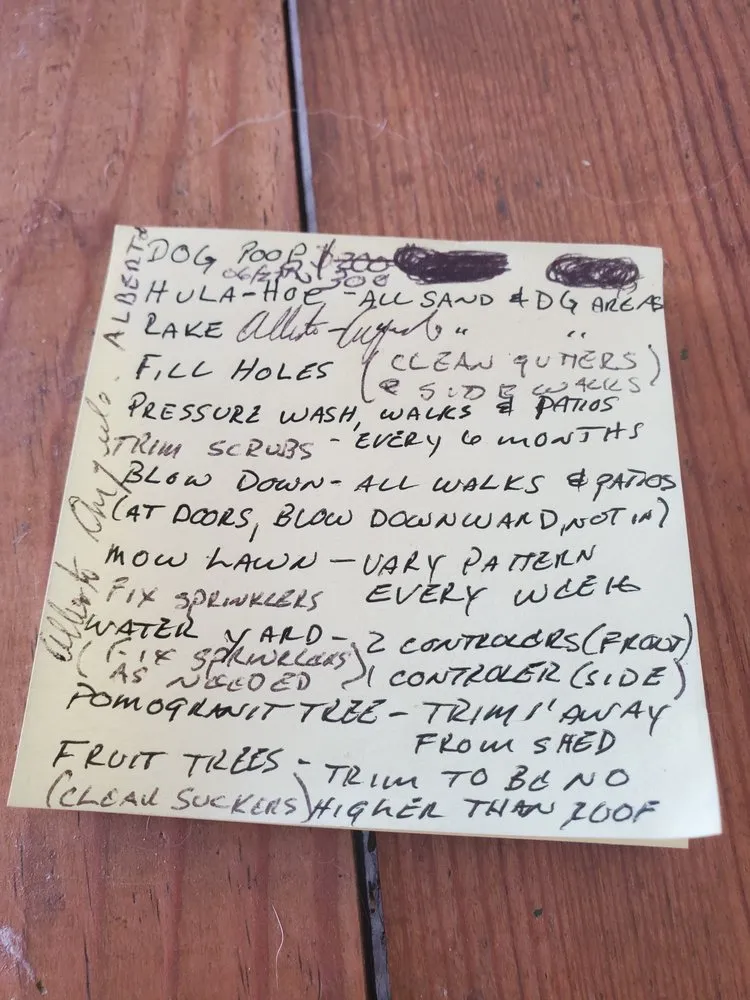 DOG POOP
HULA-HOE - ALL SAND & DG AREAS
RAKE " "
FILL HOLES (CLEAN GUTTERS)
& SIDE WALKS
PRESSURE WASH, WALKS & PATIOS
TRIM SCRUBS - EVERY 6 MONTHS
BLOW DOWN - ALL WALKS & PATIOS
(AT DOORS, BLOW DOWNWARD, NOT IN)
MOW LAWN - VARY PATTERN
FIX SPRINKLERS EVERY WEEK
WATER YARD - 2 CONTROLERS (FRONT)
(FIX SPRINKLERS
AS NEEDED) 1 CONTROLER (SIDE)
POMOGRANIT TREE - TRIM 1' AWAY
FROM SHED
FRUIT TREES - TRIM TO BE NO
(CLEAR SUCKERS) HIGHER THAN ROOF
Alberto Angulo. ALBERTO